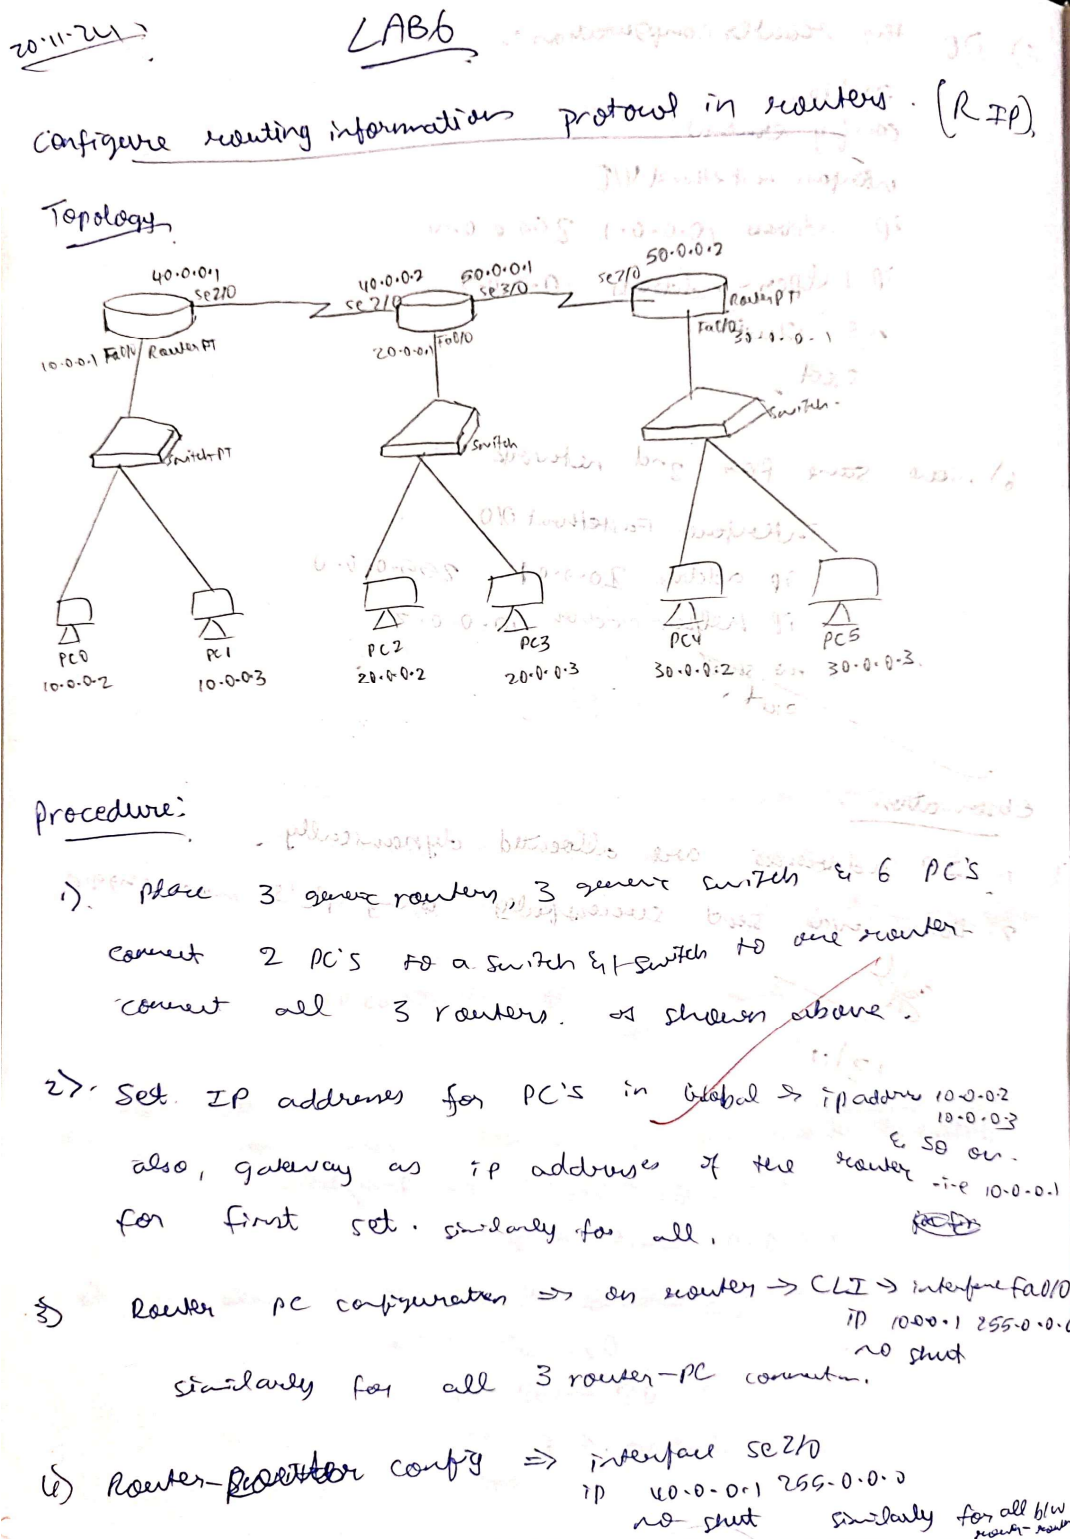 20-11-24
LAB6
Configure routing information protocol in routers. (RIP).
Topology
40.0.0.1
se2/0
40.0.0.2
se2/0
50.0.0.1
se3/0
50.0.0.2
se2/0
Router PT
10.0.0.1 Fa0/0 Router PT
20.0.0.1 Fa0/0
Fa0/0
30.0.0.1
Switch PT
Switch
Switch
PC0
10.0.0.2
PC1
10.0.0.3
PC2
20.0.0.2
PC3
20.0.0.3
PC4
30.0.0.2
PC5
30.0.0.3
Procedure:
1). Place 3 generic routers, 3 generic switch & 6 PC'S
connect 2 PC'S to a switch & 1 switch to one router-
connect all 3 routers. as shown above.
2). Set IP addresses for PC'S in Global → ip address 10.0.0.2
10.0.0.3
& so on.
also, gateway as ip addresses of the router -i-e 10.0.0.1
for first set. similarly for all.
3) Router PC configuration ⇒ on router → CLI → interface Fa0/0
ip 10.0.0.1 255.0.0.0
no shut
similarly for all 3 router-PC connection.
4) Router-Router config ⇒ interface se2/0
ip 40.0.0.1 255.0.0.0
no shut similarly for all b/w
router-router